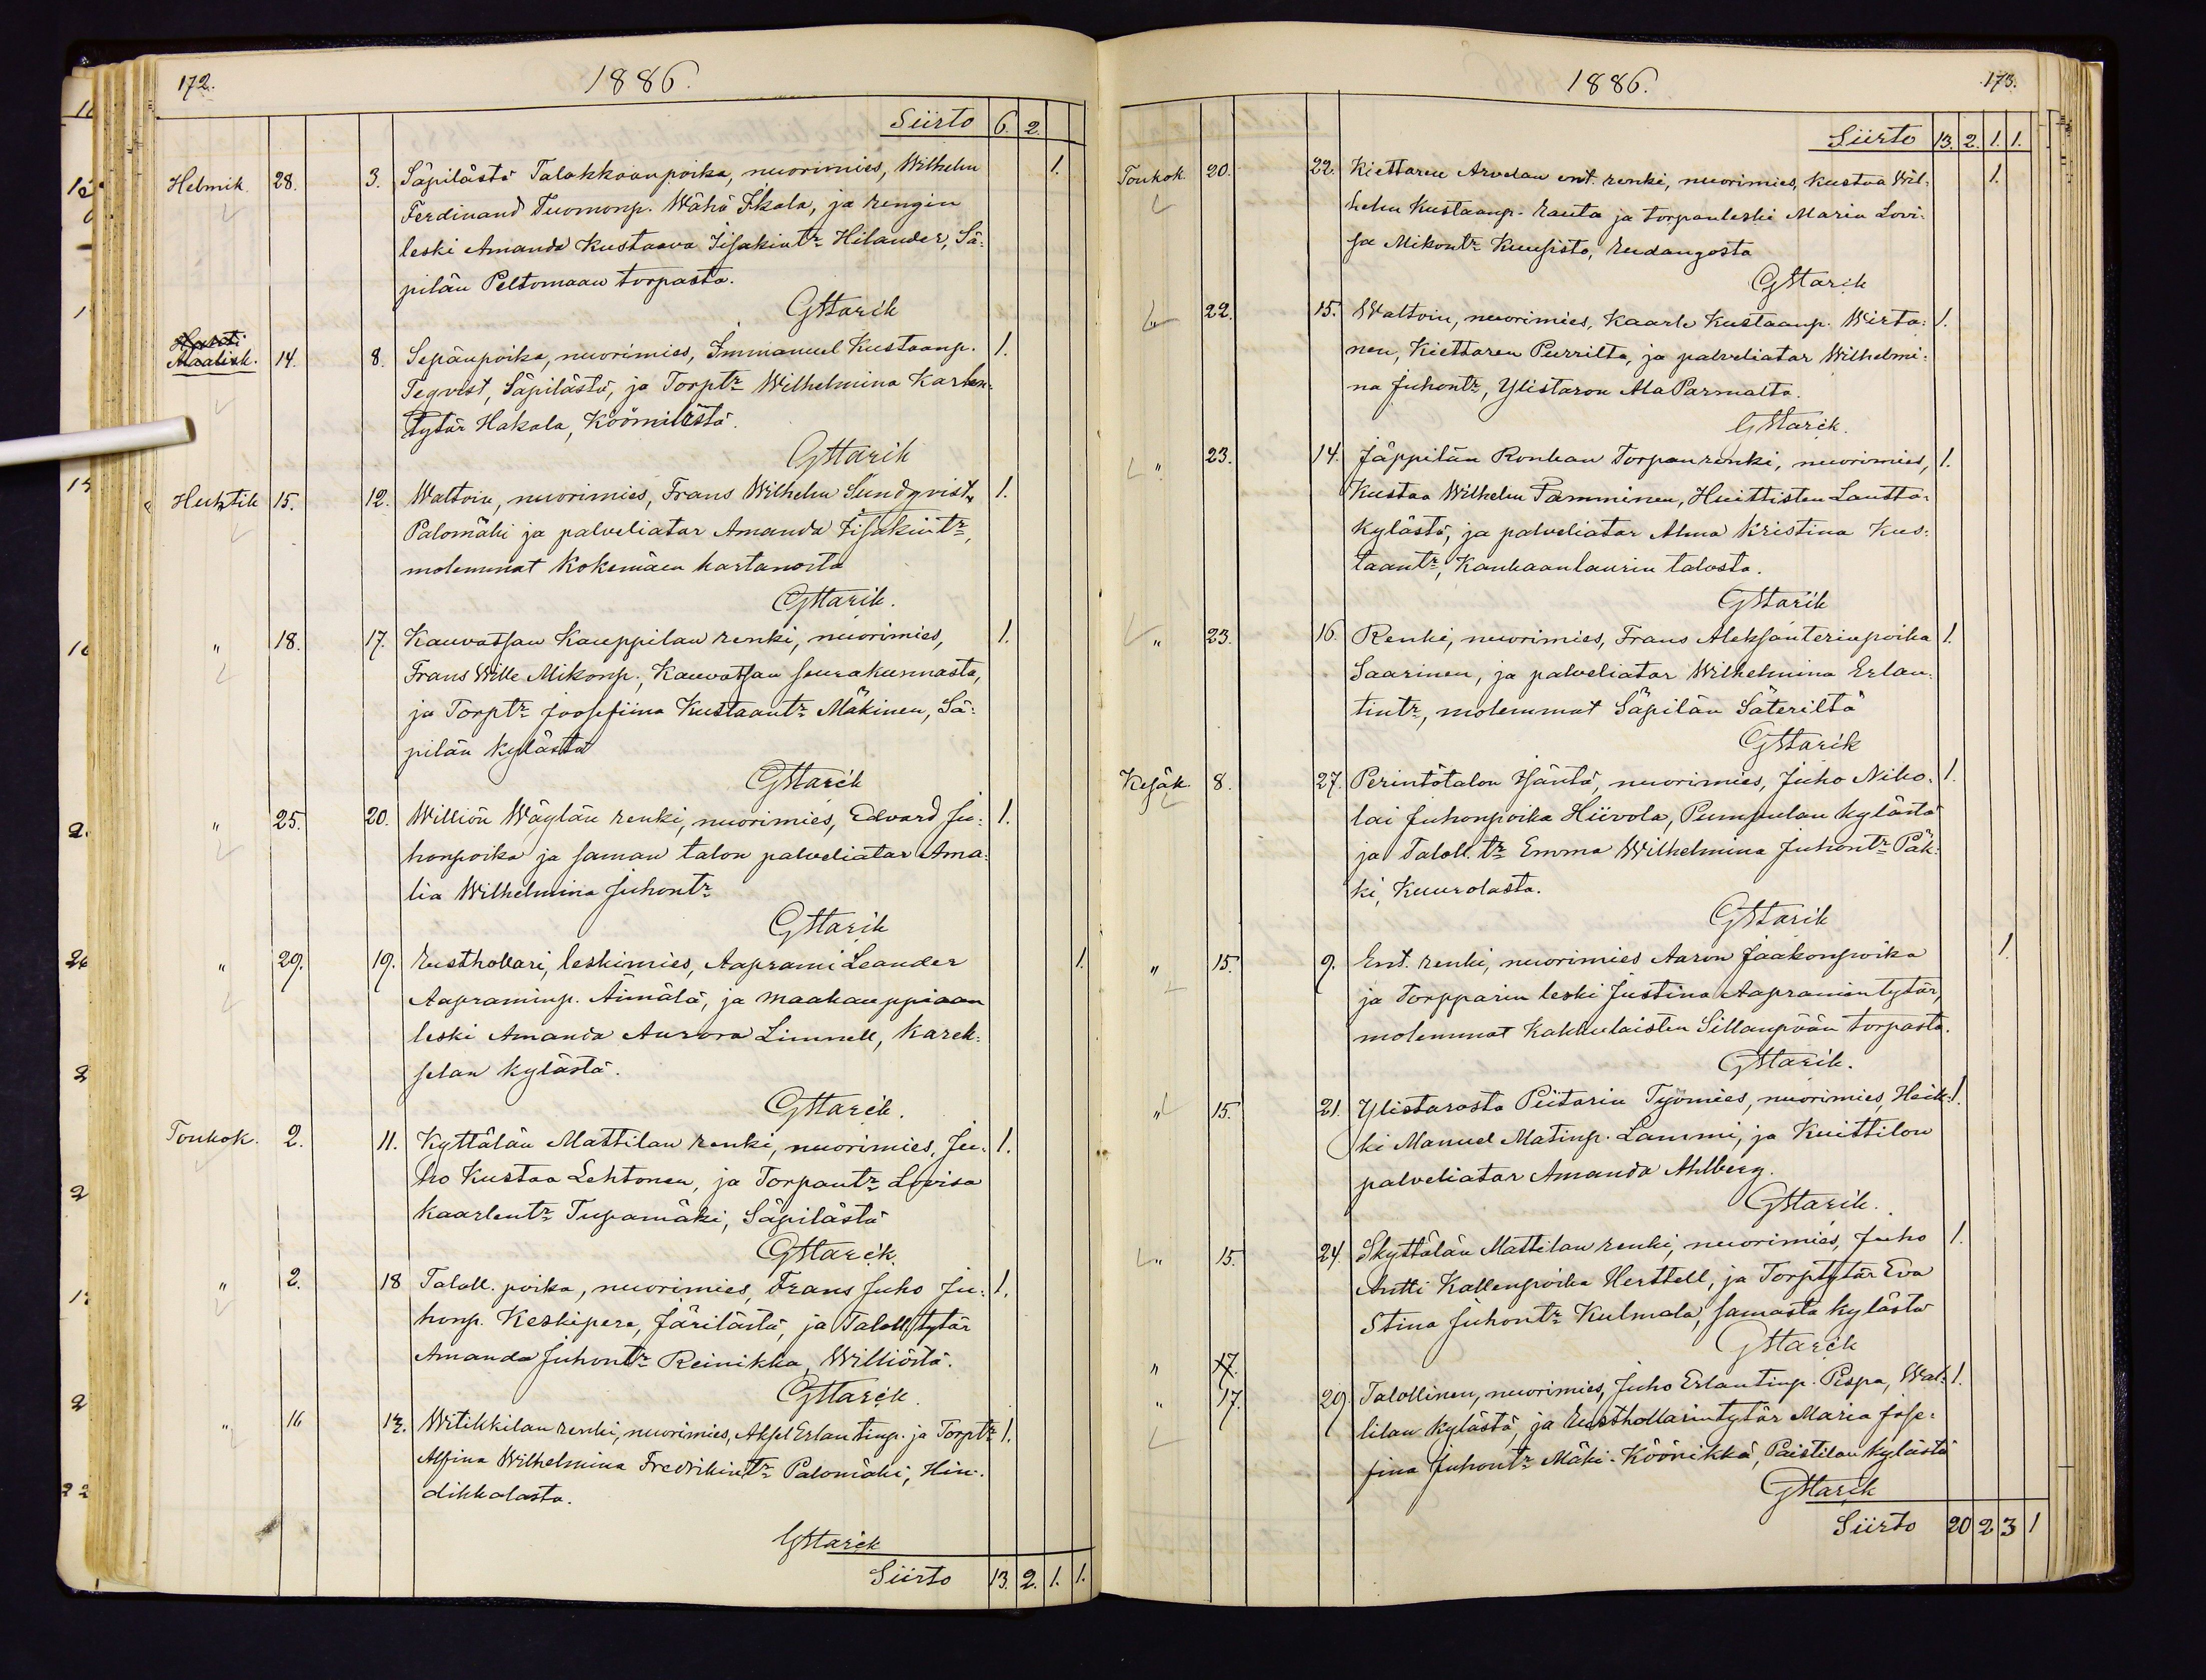 172.
1886.
Siirto 6. 2.
Helmik. 28. 3. Säpilästä Talokkaanpoika, nuorimies, Wilhelm 1.
Ferdinand Tuomonp. Wähä Ikala, ja rengin
leski Amanda Kustaava Iisakintr Hilander, Sä-
pilän Peltomaan torpasta.
GStarck
Maalisk. 14. 8. Sepänpoika, nuorimies, Immanuel Kustaanp. 1.
Teqvist, Säpilästä, ja Torptr Wilhelmina Karlen-
tytär Hakala, Köömilästä.
GStarck
Huhtik 15. 12. Waltoin, nuorimies, Frans Wilhelm Sundqvist 1.
Palomäki ja palveliatar Amanda Iisakintr,
molemmat Kokemäen kartanosta
GStarck.
" 18. 17. Kauvatsan Kauppilan renki, nuorimies, 1.
Frans Wille Mikonp., Kauvatsan seurakunnasta,
ja Torptr Joosefiina Kustaantr Mäkinen, Sä-
pilän kylästä
GStarck
" 25. 20. Williön Wäylän renki, nuorimies, Edvard Ju- 1.
honpoika ja saman talon palveliatar Ama-
lia Wilhelmina Juhontr
GStarck
" 29. 19. Rusthollari, leskimies, Aaprami Leander 1.
Aapraminp. Äimälä, ja maakauppiaan
leski Amanda Aurora Limnell, Karek-
selan kylästä.
GStarck.
Toukok. 2. 11. Kyttälän Mattilan renki, nuorimies, Ju- 1.
ho Kustaa Lehtonen, ja Torpantr Lovisa
Kaarlentr Tupamäki, Säpilästä
GStarck.
" 2. 18 Taloll. poika, nuorimies, Frans Juho Ju- 1.
honp. Keskipere, Järilästä, ja Taloll. tytär
Amanda Juhontr Reinikka, Williöstä.
GStarck.
" 16 13. Witikkilan renki, nuorimies, Aksel Erlantinp. ja Torptr 1.
Alfina Wilhelmina Fredrikintr Palomäki, Hin-
dikkalasta.
GStarck
Siirto 13. 2. 1. 1.
1886.
173.
Siirto 13. 2. 1. 1.
Toukok. 20. 22. Kiettaren Arvelan ent. renki, nuorimies, Kustaa Wil- 1.
helm Kustaanp. Rauta ja torpanleski Maria Lovi-
sa Mikontr Kuusisto, Rudangosta
GStarck
" 22. 15. Waltoin, nuorimies, Kaarle Kustaanp. Wirta- 1.
nen, Kiettaren Purrilta, ja palveliatar Wilhelmi-
na Juhontr, Ylistaron AlaParmalta.
GStarck.
" 23. 14. Jäppilän Ronkan Torpanrenki, nuorimies, 1.
Kustaa Wilhelm Tamminen, Huittisten Lautta-
kylästä, ja palveliatar Alma Kristina Kus-
taantr, Kankaanlaurin talosta.
GStarck
" 23. 16. Renki, nuorimies, Frans Aleksanterinpoika 1.
Saarinen, ja palveliatar Wilhelmina Erlan-
tintr, molemmat Säpilän Säteriltä
GStarck
Kesäk. 8. 27. Perintötalon isäntä, nuorimies, Juho Niko- 1.
lai Juhonpoika Hiivola, Pumpulan kylästä
ja Taloll. tr Emma Wilhelmina Juhontr Päk-
ki, Kuurolasta.
GStarck
" 15. 9. Ent. renki, nuorimies Aaron Jaakonpoika 1.
ja Torpparin leski Justina Aapramintytär,
molemmat Kakkulaisten Sillanpään torpasta.
GStarck.
" 15. 21. Ylistarosta Piitarin Työmies, nuorimies, Heik- 1.
ki Manuel Matinp. Lammi, ja Kuittilon
palveliatar Amanda Ahlberg.
GStarck.
" 15. 24. Skyttälän Mattilan renki, nuorimies, Juho 1.
Antti Kallenpoika Herttell, ja Torptytär Eva
Stina Juhontr Kulmala, samasta kylästä
GStarck
" 17.
" 17. 29. Talollinen, nuorimies, Juho Erlantinp. Pispa, Wal- 1.
lilan kylästä, ja Rusthollarintytär Maria Jose-
fina Juhontr Mäki-Köönikkä, Paistilan kylästä
GStarck
Siirto 20 2 3 1